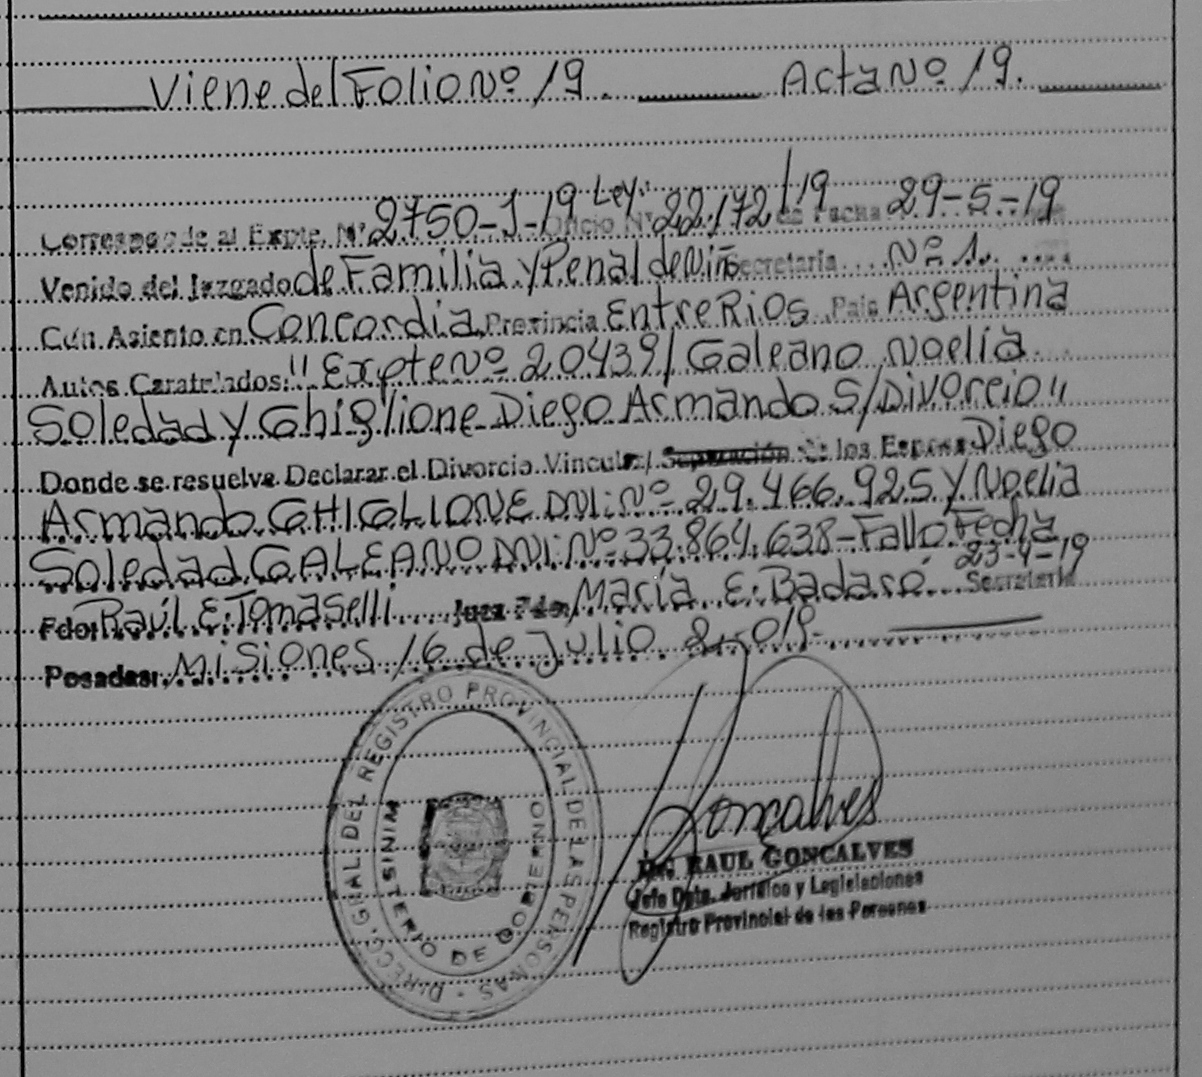 Viene del Folio Nº 19. Acta Nº 19.
Corresponde al Expte. Nº 2750-J-19 Ley: 22.172/19 Oficio Nº de Fecha 29-5-19
Venido del Juzgado de Familia y Penal de Niñ Secretaria Nº 1.
Cún Asiento en Concordia, Provincia Entre Rios País Argentina
Autos Caratulados: "Expte Nº 20439/ Galeano Noelia
Soledad y Ghiglione Diego Armando S/Divorcio"
Donde se resuelve Declarar el Divorcio Vincular/ Separación de los Esposos Diego
Armando GHIGLIONE DNI: Nº 29.466.925 y Noelia
Soledad GALEANO DNI: Nº 33.864.638-Fallo Fecha
23-4-19
Fdo: Raúl E. Tomaselli Juez Fdo: María E. Badaró Secretaria
Posadas: Misiones 16 de Julio 2.019-
DIRECC. GRAL DEL REGISTRO PROVINCIAL DE LAS PERSONAS
MINISTERIO DE GOBIERNO
Goncalves
Dr. RAUL GONCALVES
Jefe Dpto. Jurídico y Legislaciones
Registro Provincial de las Personas